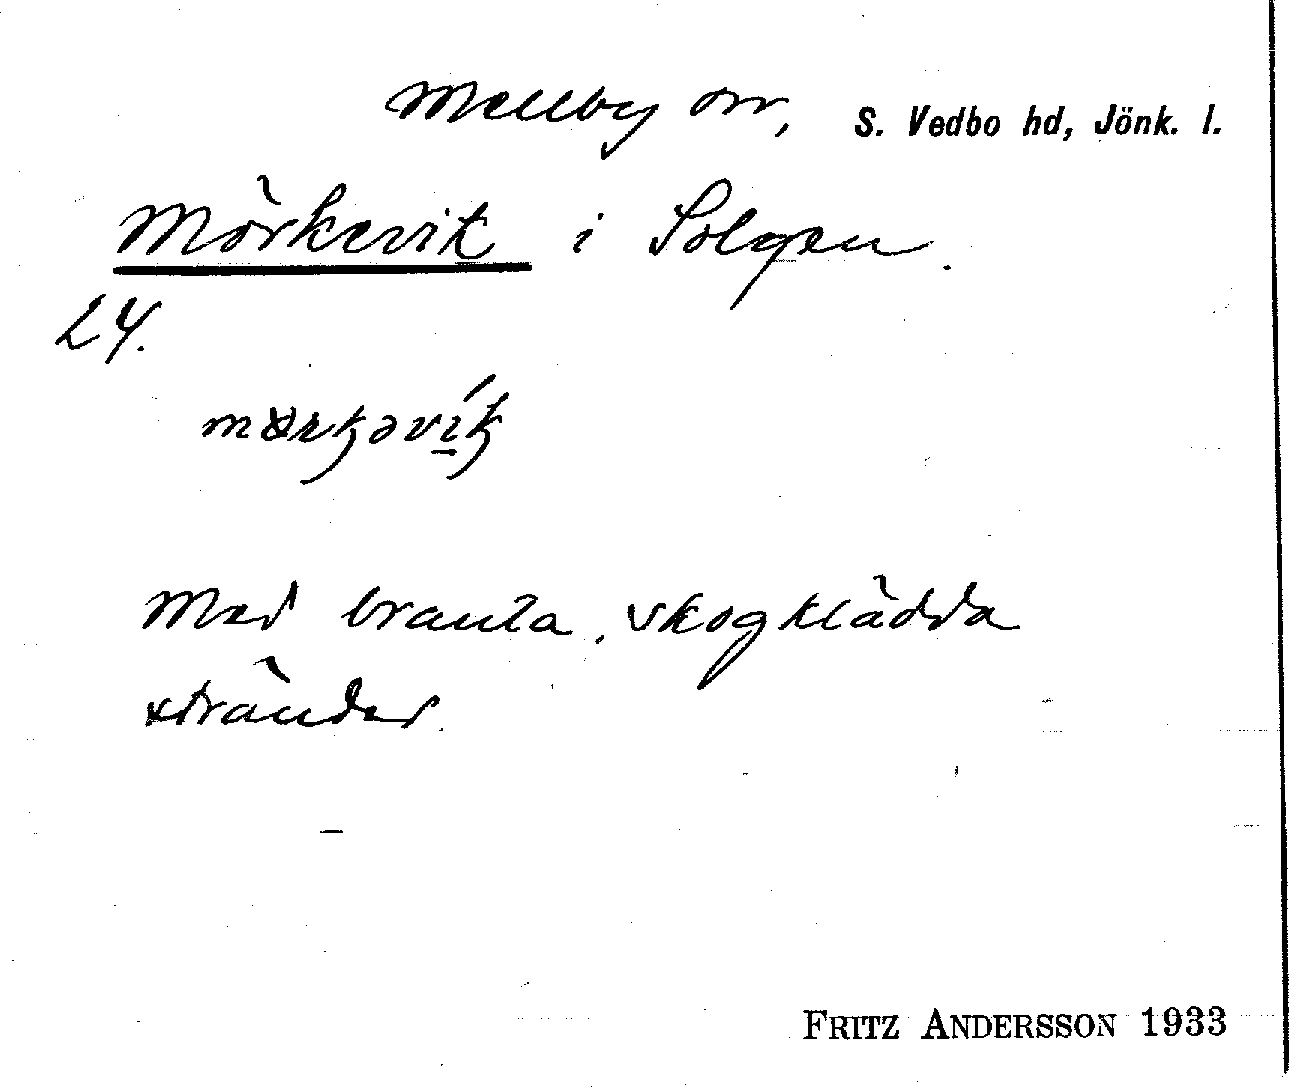 Mellby sn, S. Vedbo hd, Jönk. l.
Mörkevik i Solgen.
24.
Med branta, skogklädda
stränder.
FRITZ ANDERSSON 1933